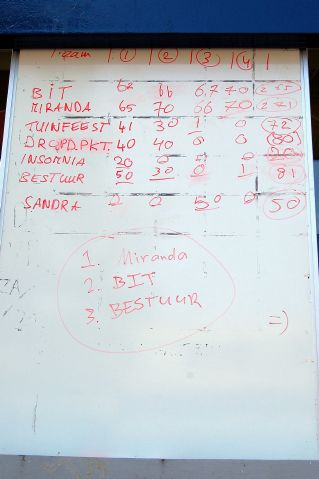 Team 1 ① | ② | ③ | ④ |
BIT 66 67 70
MIRANDA 65 70 66 70 271
TUINFEEST 41 30 1 0 72
DROPD.PKT. 40 40 0 0 80
INSOMNIA 20 0 0 0 20
BESTUUR 50 30 0 1 81
SANDRA 0 0 50 0 50
1. Miranda
2. BIT
3. BESTUUR
=)